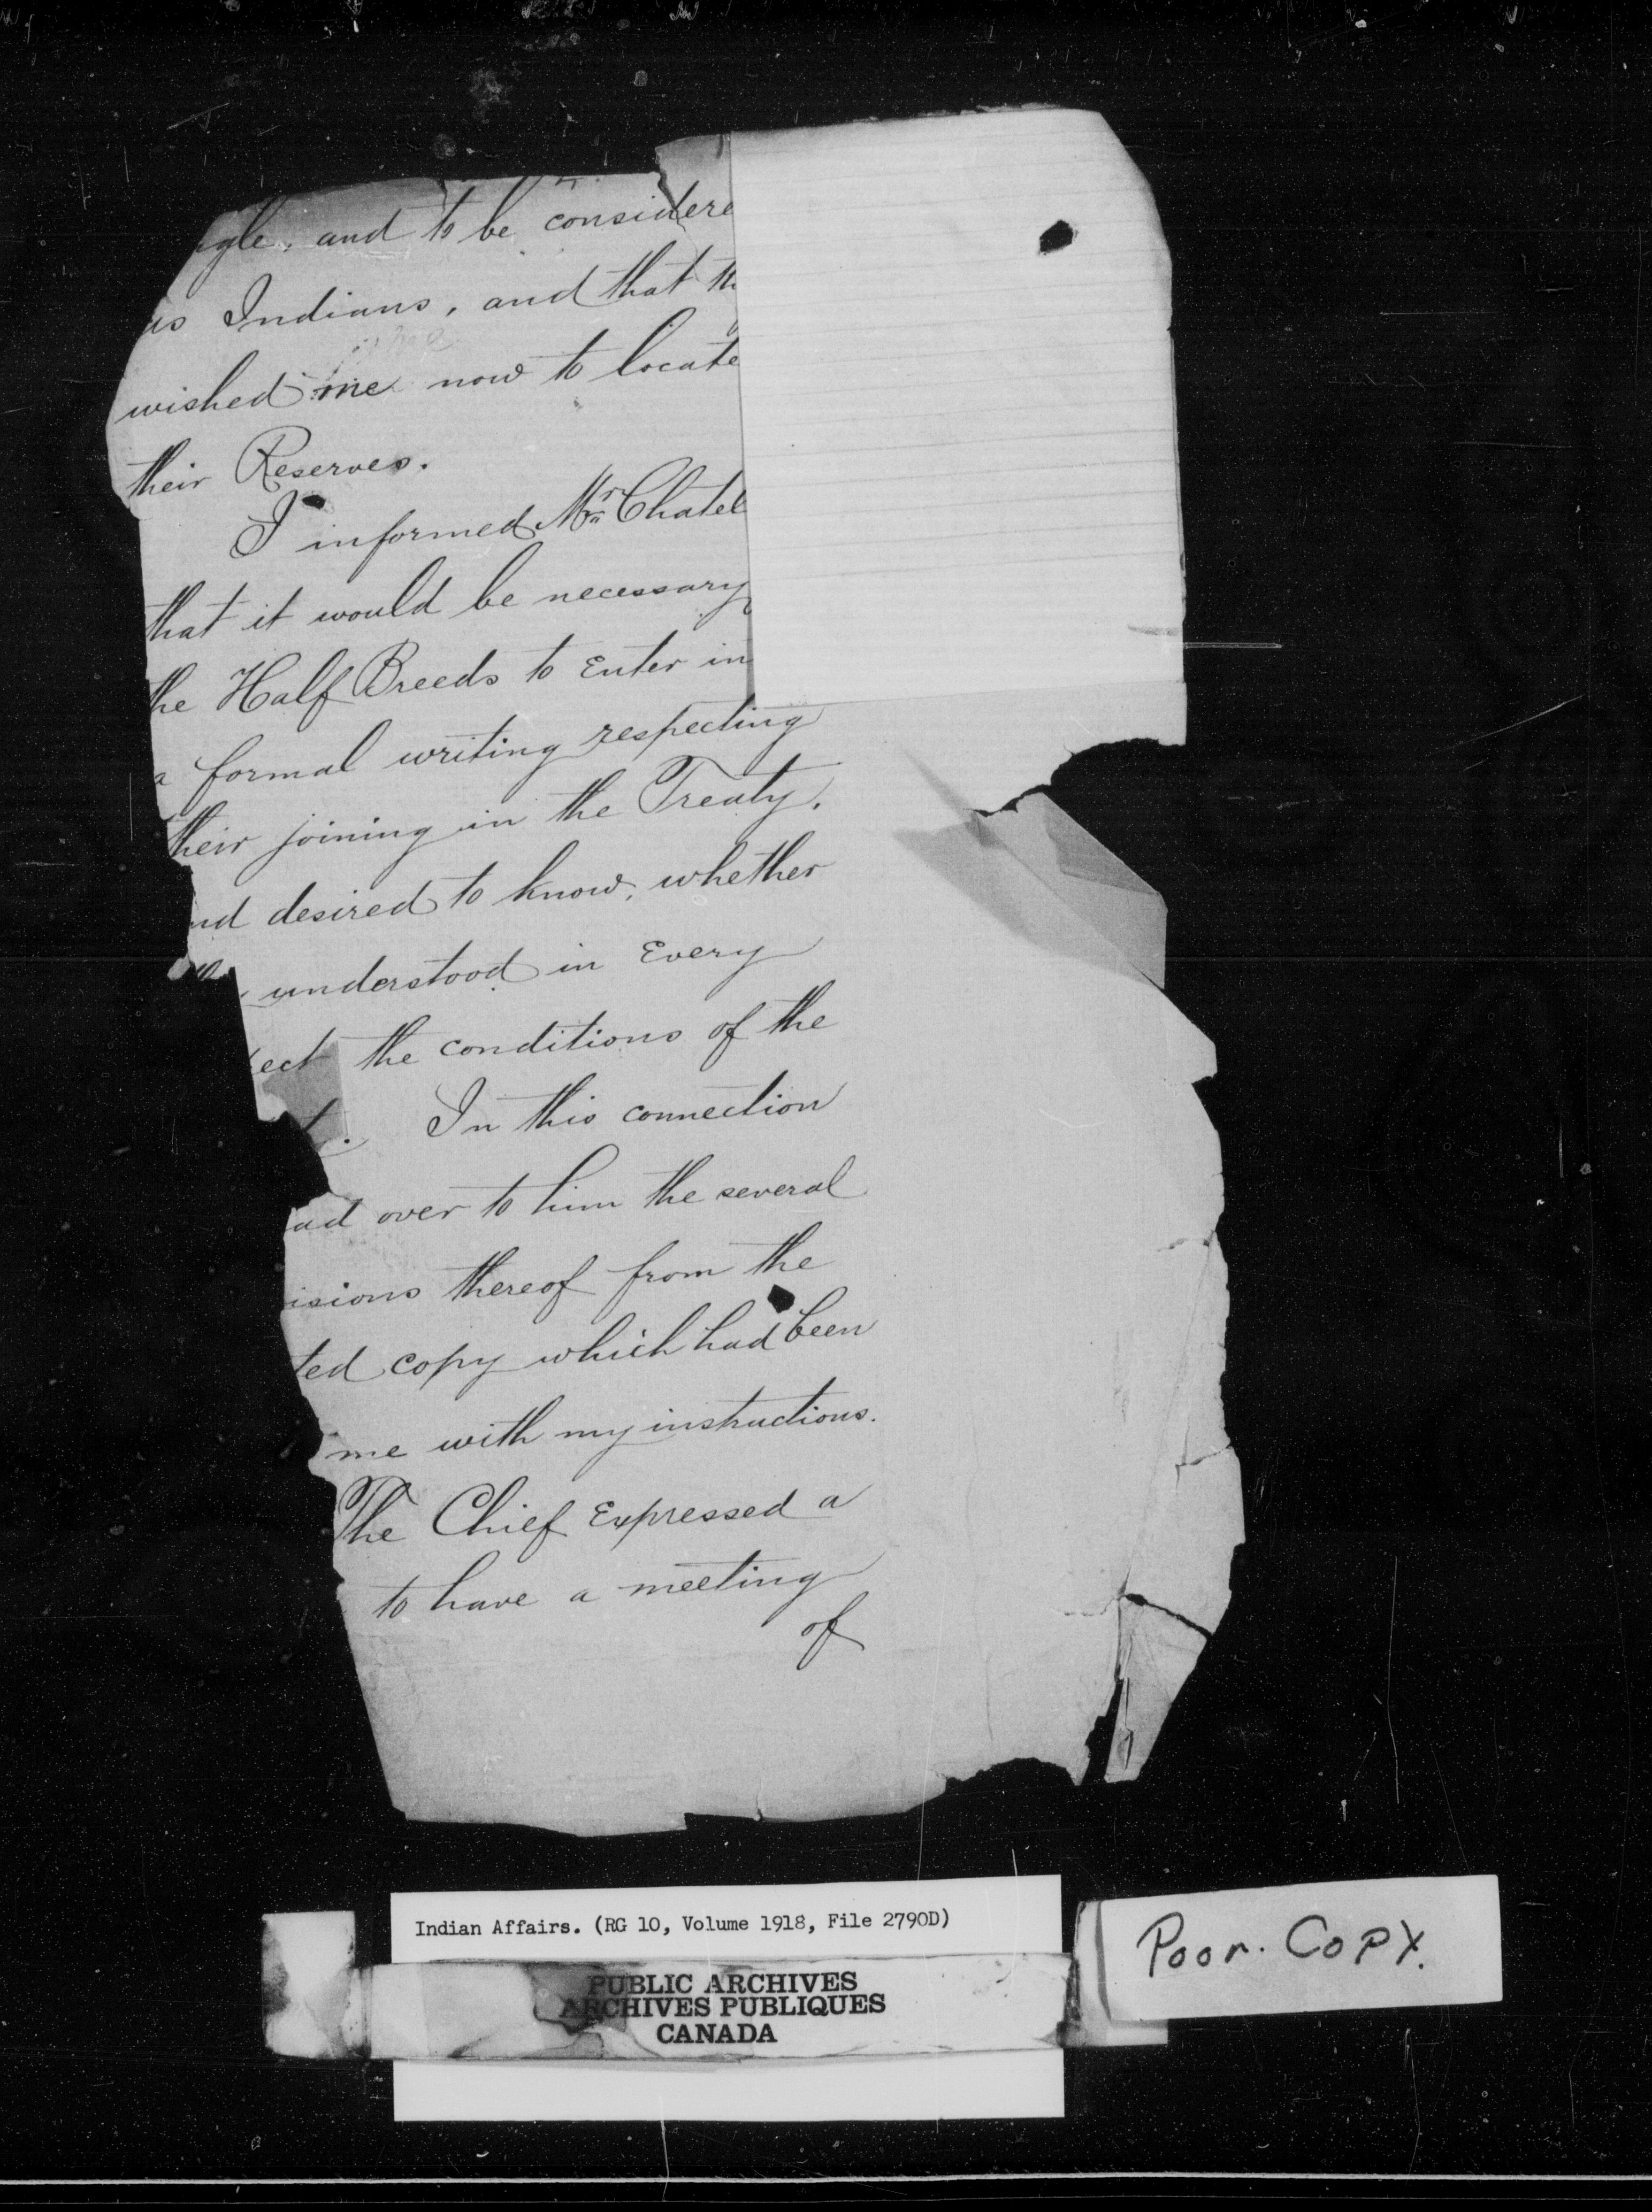 and to be considere
as Indians, and that th
wished me now to locate
their Reserves.
I informed Mr Chatel
that it would be necessary
the Half Breeds to Enter in
a formal writing respecting
their joining in the Treaty.
nd desired to know, whether
understood in Every
ect the conditions of the
In this connection
ad over to him the several
isions thereof from the
ted copy which had been
me with my instructions.
The Chief Expressed a
to have a meeting
of
Indian Affairs. (RG 10, Volume 1918, File 2790D)
PUBLIC ARCHIVES
ARCHIVES PUBLIQUES
CANADA
Poor. Copy.